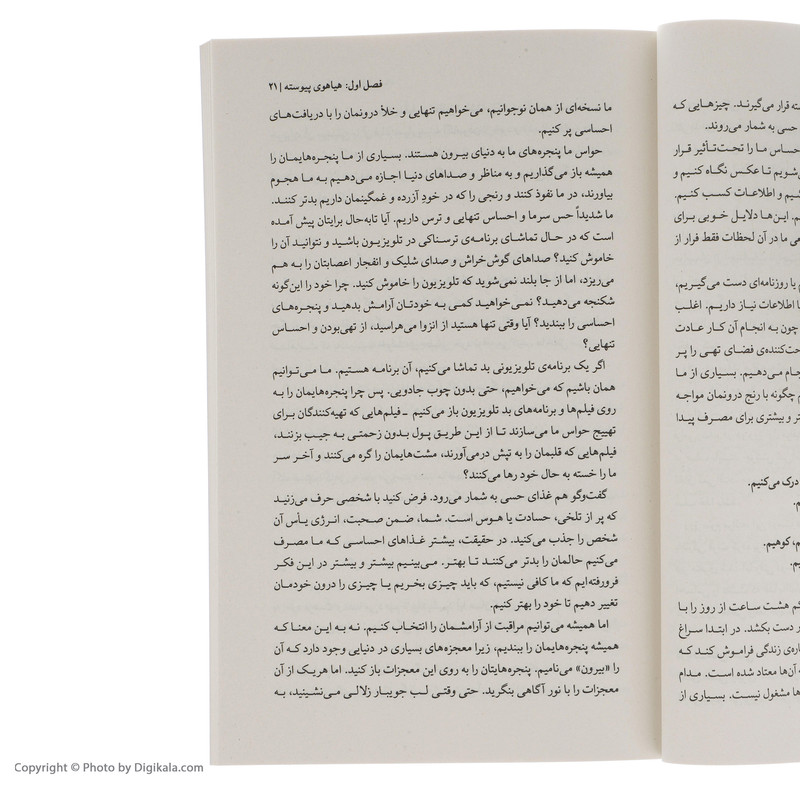 ته قرار می‌گیرند. چیزهایی که
حسی به شمار می‌روند.
حساس ما را تحت‌تأثیر قرار
شویم تا عکس نگاه کنیم و
ئیم و اطلاعات کسب کنیم.
م. این‌ها دلایل خوبی برای
عی ما در آن لحظات فقط فرار از
م یا روزنامه‌ای دست می‌گیریم،
ا اطلاعات نیاز داریم. اغلب
چون به انجام آن کار عادت
حت‌کننده‌ی فضای تهی را پر
جام می‌دهیم. بسیاری از ما
م چگونه با رنج درونمان مواجه
تر و بیشتری برای مصرف پیدا
درک می‌کنیم.
م.
م، کوهیم.
یم.
گم هشت ساعت از روز را با
ر دست بکشد. در ابتدا سراغ
اره‌ی زندگی فراموش کند که
ه آن‌ها معتاد شده است. مدام
ها مشغول نیست. بسیاری از
فصل اول: هیاهوی پیوسته | ۲۱
ما نسخه‌ای از همان نوجوانیم، می‌خواهیم تنهایی و خلأ درونمان را با دریافت‌های
احساسی پر کنیم.
حواس ما پنجره‌های ما به دنیای بیرون هستند. بسیاری از ما پنجره‌هایمان را
همیشه باز می‌گذاریم و به مناظر و صداهای دنیا اجازه می‌دهیم به ما هجوم
بیاورند، در ما نفوذ کنند و رنجی را که در خودِ آزرده و غمگینمان داریم بدتر کنند.
ما شدیداً حس سرما و احساس تنهایی و ترس داریم. آیا تابه‌حال برایتان پیش آمده
است که در حال تماشای برنامه‌ی ترسناکی در تلویزیون باشید و نتوانید آن را
خاموش کنید؟ صداهای گوش‌خراش و صدای شلیک و انفجار اعصابتان را به هم
می‌ریزد، اما از جا بلند نمی‌شوید که تلویزیون را خاموش کنید. چرا خود را این‌گونه
شکنجه می‌دهید؟ نمی‌خواهید کمی به خودتان آرامش بدهید و پنجره‌های
احساسی را ببندید؟ آیا وقتی تنها هستید از انزوا می‌هراسید، از تهی‌بودن و احساس
تنهایی؟
اگر یک برنامه‌ی تلویزیونی بد تماشا می‌کنیم، آن برنامه هستیم. ما می‌توانیم
همان باشیم که می‌خواهیم، حتی بدون چوب جادویی. پس چرا پنجره‌هایمان را به
روی فیلم‌ها و برنامه‌های بد تلویزیون باز می‌کنیم ـ فیلم‌هایی که تهیه‌کنندگان برای
تهییج حواس ما می‌سازند تا از این طریق پول بدون زحمتی به جیب بزنند،
فیلم‌هایی که قلبمان را به تپش درمی‌آورند، مشت‌هایمان را گره می‌کنند و آخر سر
ما را خسته به حال خود رها می‌کنند؟
گفت‌وگو هم غذای حسی به شمار می‌رود. فرض کنید با شخصی حرف می‌زنید
که پر از تلخی، حسادت یا هوس است. شما، ضمن صحبت، انرژی یأس آن
شخص را جذب می‌کنید. در حقیقت، بیشتر غذاهای احساسی که ما مصرف
می‌کنیم حالمان را بدتر می‌کنند تا بهتر. می‌بینیم بیشتر و بیشتر در این فکر
فرورفته‌ایم که ما کافی نیستیم، که باید چیزی بخریم یا چیزی را درون خودمان
تغییر دهیم تا خود را بهتر کنیم.
اما همیشه می‌توانیم مراقبت از آرامشمان را انتخاب کنیم. نه به این معنا که
همیشه پنجره‌هایمان را ببندیم، زیرا معجزه‌های بسیاری در دنیایی وجود دارد که آن
را «بیرون» می‌نامیم. پنجره‌هایتان را به روی این معجزات باز کنید. اما هریک از آن
معجزات را با نور آگاهی بنگرید. حتی وقتی لب جویبار زلالی می‌نشینید، به
Copyright © Photo by Digikala.com